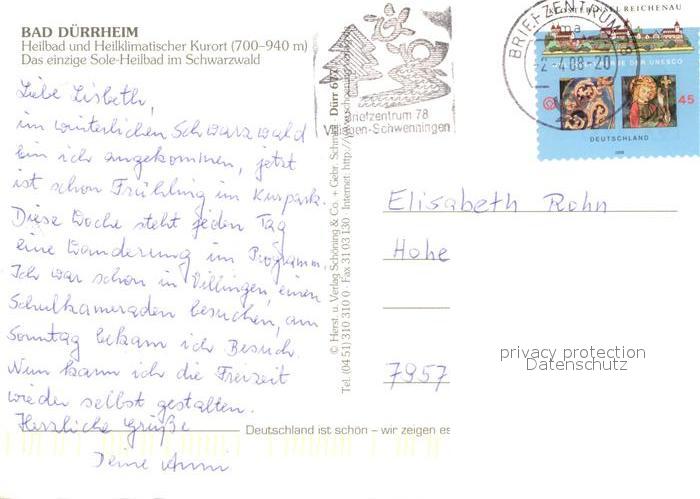 BAD DÜRRHEIM
Heilbad und Heilklimatischer Kurort (700–940 m)
Das einzige Sole-Heilbad im Schwarzwald
Liebe Lisbeth,
im winterlichen Schwarzwald
bin ich angekommen, jetzt
ist schon Frühling im Kurpark.
Diese Woche steht jeden Tag
eine Wanderung im Programm.
Ich war schon in Villingen, einen
Schulkameraden besuchen, am
Sonntag bekam ich Besuch.
Nun kann ich die Freizeit
wieder selbst gestalten.
Herzliche Grüße
Deine
Deutschland ist schön – wir zeigen es
© Herst. u. Verlag Schöning & Co. + Gebr. Schmidt
Tel. (04 51) 310 310 0 · Fax 31 03 130 · Internet: http://
Dürr
Briefzentrum 78
Villingen-Schwenningen
BRIEFZENTRUM
-2.4.08-20
KLOSTERINSEL REICHENAU
DER UNESCO
45
DEUTSCHLAND
Elisabeth Rohn
Hohe
7957
privacy protection
Datenschutz